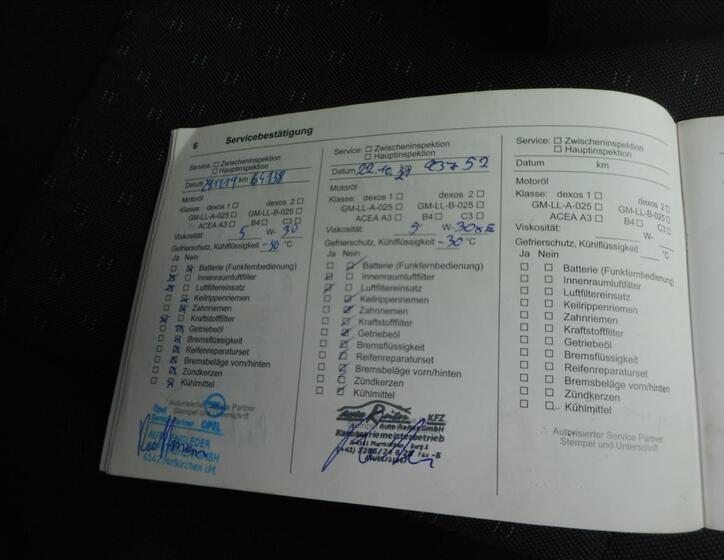 6 Servicebestätigung
Service: Zwischeninspektion
Hauptinspektion
Datum km
Motoröl
Klasse: dexos 1 dexos 2
GM-LL-A-025 GM-LL-B-025
ACEA A3 B4 C3
Viskosität: 5 W- 30
Gefrierschutz, Kühlflüssigkeit -30 °C
Ja Nein
Batterie (Funkfernbedienung)
Innenraumluftfilter
Luftfiltereinsatz
Keilrippenriemen
Zahnriemen
Kraftstofffilter
Getriebeöl
Bremsflüssigkeit
Reifenreparaturset
Bremsbeläge vorn/hinten
Zündkerzen
Kühlmittel
Autorisierter Service Partner
Stempel und Unterschrift
Opel
Service Partner OPEL
4342 Hofkirchen i.M.
Service: Zwischeninspektion
Hauptinspektion
Datum 22.10.21 km 93752
Motoröl
Klasse: dexos 1 dexos 2
GM-LL-A-025 GM-LL-B-025
ACEA A3 B4 C3
Viskosität: 5 W-30
Gefrierschutz, Kühlflüssigkeit -30 °C
Ja Nein
Batterie (Funkfernbedienung)
Innenraumluftfilter
Luftfiltereinsatz
Keilrippenriemen
Zahnriemen
Kraftstofffilter
Getriebeöl
Bremsflüssigkeit
Reifenreparaturset
Bremsbeläge vorn/hinten
Zündkerzen
Kühlmittel
Auto KFZ
GmbH
Karosseriemeisterbetrieb
Service: Zwischeninspektion
Hauptinspektion
Datum km
Motoröl
Klasse: dexos 1 dexos 2
GM-LL-A-025 GM-LL-B-025
ACEA A3 B4 C3
Viskosität: W-
Gefrierschutz, Kühlflüssigkeit °C
Ja Nein
Batterie (Funkfernbedienung)
Innenraumluftfilter
Luftfiltereinsatz
Keilrippenriemen
Zahnriemen
Kraftstofffilter
Getriebeöl
Bremsflüssigkeit
Reifenreparaturset
Bremsbeläge vorn/hinten
Zündkerzen
Kühlmittel
Autorisierter Service Partner
Stempel und Unterschrift